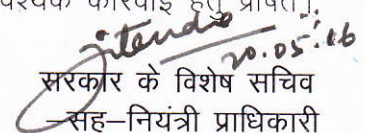 आवश्यक कार्रवाई हेतु प्रेषित।
Jitendra
20.05.16
सरकार के विशेष सचिव
–सह–नियंत्री प्राधिकारी